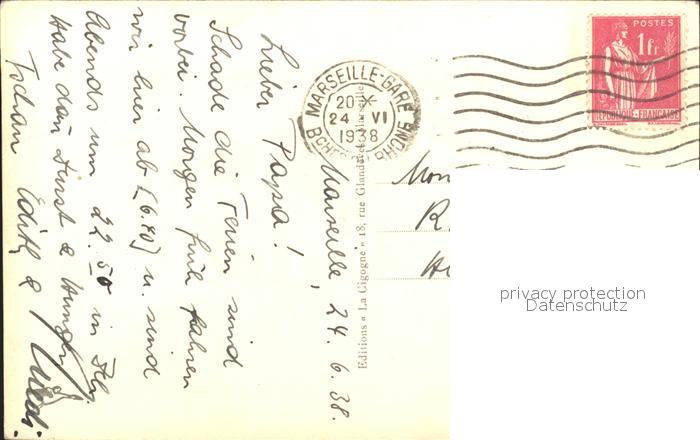 Marseille, 24.6.38.
Lieber Papa!
Schade die Ferien sind
vorbei. Morgen früh fahren
wir hier ab [6.40] u. sind
Abends um 22.50 in
Habe dan Durst & Hunger
Tschau Edith &
MARSEILLE-GARE
20
24 VI
1938
BCHES DU RHONE
POSTES
1fr
REPUBLIQUE-FRANÇAISE
Editions « La Cigogne » 18, rue Glandevès, Marseille
Mon
R
privacy protection
Datenschutz